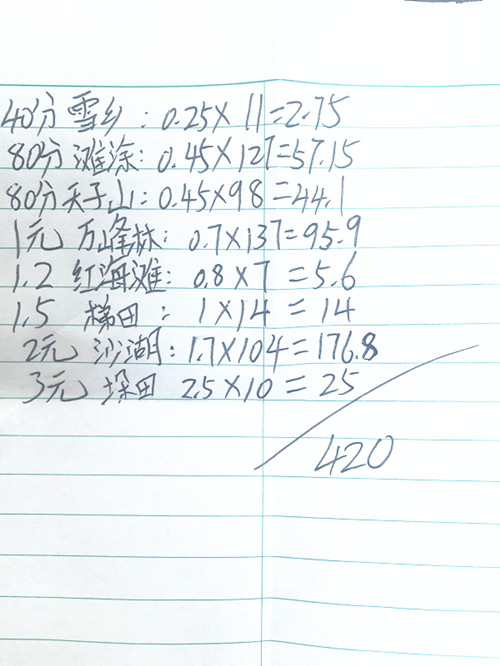 40分雪乡:0.25×11=2.75
80分滩涂:0.45×127=57.15
80分天子山:0.45×98=44.1
1元 万峰林:0.7×137=95.9
1.2 红海滩:0.8×7=5.6
1.5 梯田:1×14=14
2元 沙湖:1.7×104=176.8
3元 垛田 2.5×10=25
420